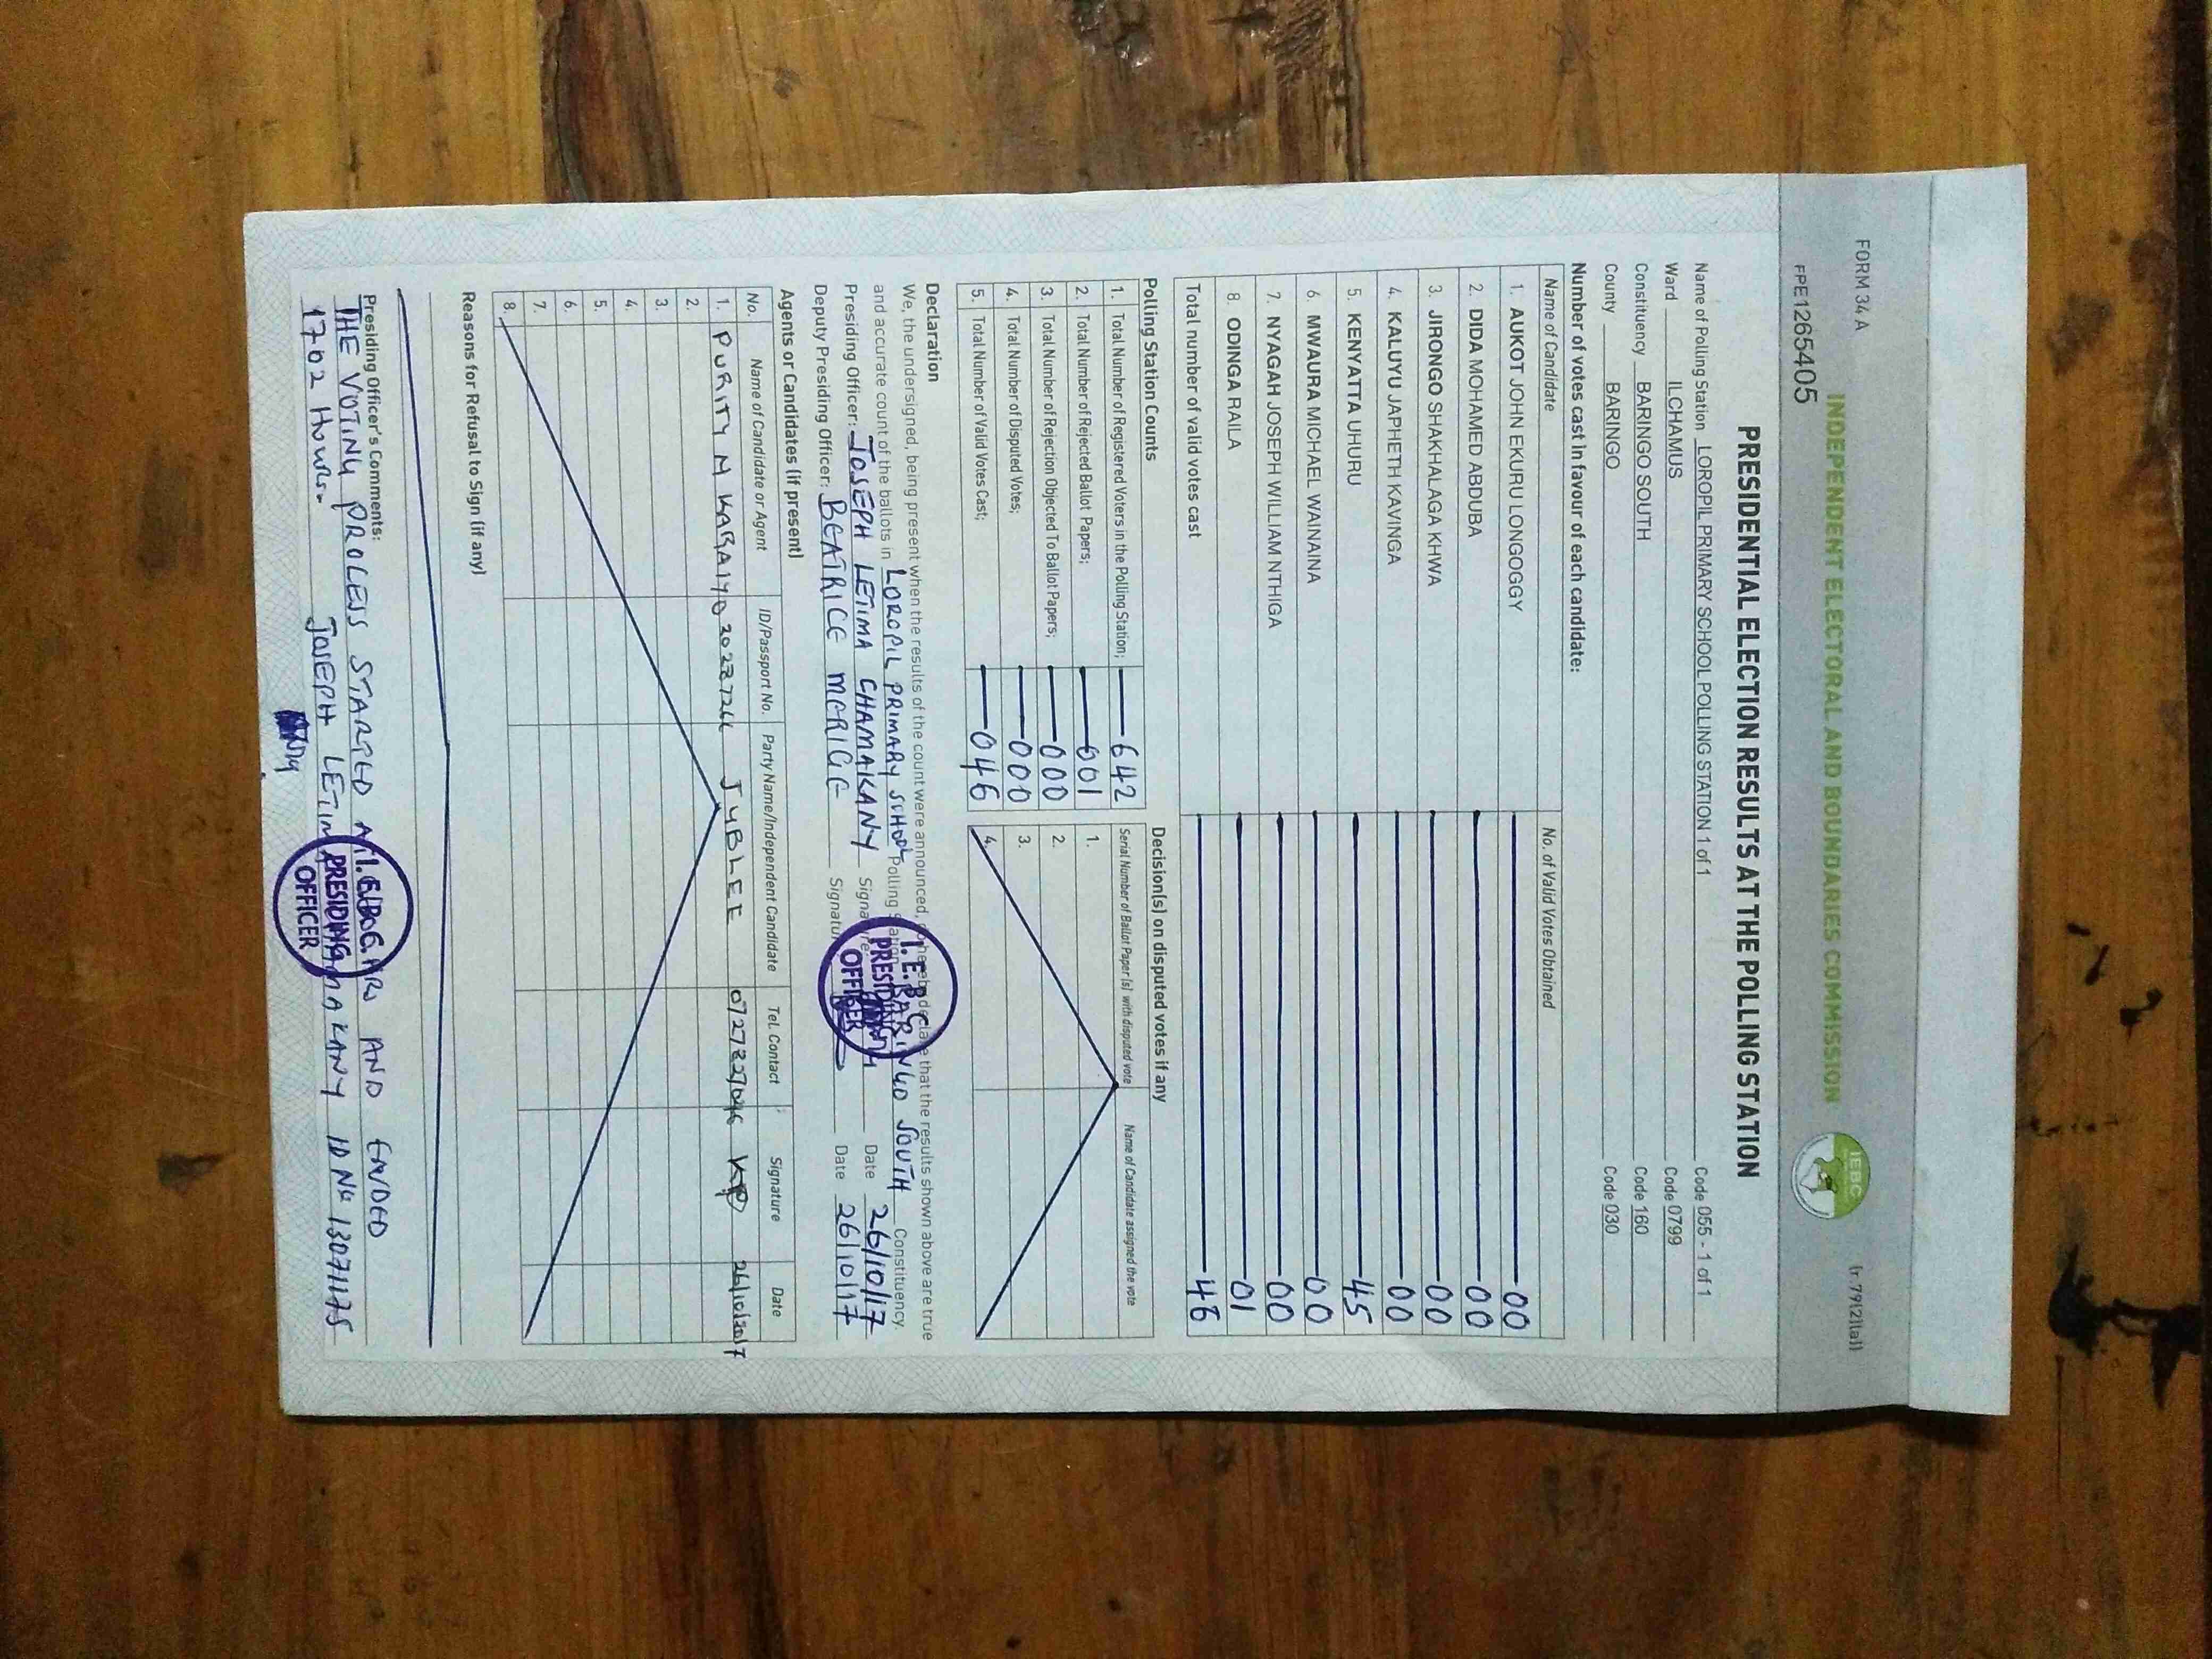 FORM 34 A
(r.79(2)(a))
INDEPENDENT ELECTORAL AND BOUNDARIES COMMISSION
IEBC
FPE1265405
PRESIDENTIAL ELECTION RESULTS AT THE POLLING STATION
Name of Polling Station LOROPIL PRIMARY SCHOOL POLLING STATION 1 of 1 Code 055 - 1 of 1
Ward ILCHAMUS Code 0799
Constituency BARINGO SOUTH Code 160
County BARINGO Code 030
Number of votes cast in favour of each candidate:
Name of Candidate No. of Valid Votes Obtained
1. AUKOT JOHN EKURU LONGOGGY 00
2. DIDA MOHAMED ABDUBA 00
3. JIRONGO SHAKHALAGA KHWA 00
4. KALUYU JAPHETH KAVINGA 00
5. KENYATTA UHURU 45
6. MWAURA MICHAEL WAINAINA 00
7. NYAGAH JOSEPH WILLIAM NTHIGA 00
8. ODINGA RAILA 01
Total number of valid votes cast 46
Polling Station Counts
1. Total Number of Registered Voters in the Polling Station; 642
2. Total Number of Rejected Ballot Papers; 001
3. Total Number of Rejection Objected To Ballot Papers; 000
4. Total Number of Disputed Votes; 000
5. Total Number of Valid Votes Cast; 046
Decision(s) on disputed votes if any
Serial Number of Ballot Paper(s) with disputed vote Name of Candidate assigned the vote
1.
2.
3.
4.
Declaration
We, the undersigned, being present when the results of the count were announced, do hereby declare that the results shown above are true
and accurate count of the ballots in LOROPIL PRIMARY SCHOOL Polling Station BARINGO SOUTH Constituency.
Presiding Officer: JOSEPH LETIMA CHAMAKANY Signature Date 26/10/17
Deputy Presiding Officer: BEATRICE MERIGE Signature Date 26/10/17
I.E.B.C
PRESIDING
OFFICER
Agents or Candidates (if present)
No. Name of Candidate or Agent ID/Passport No. Party Name/Independent Candidate Tel. Contact Signature Date
1. PURITY N JUBLEE 26/10/2017
2.
3.
4.
5.
6.
7.
8.
Reasons for Refusal to Sign (if any)
Presiding Officer's Comments:
THE VOTING PROCESS STARTED AND ENDED
1702 Hours. JOSEPH LETIMA CHAMAKANY ID No 13071175
I.E.B.C
PRESIDING
OFFICER